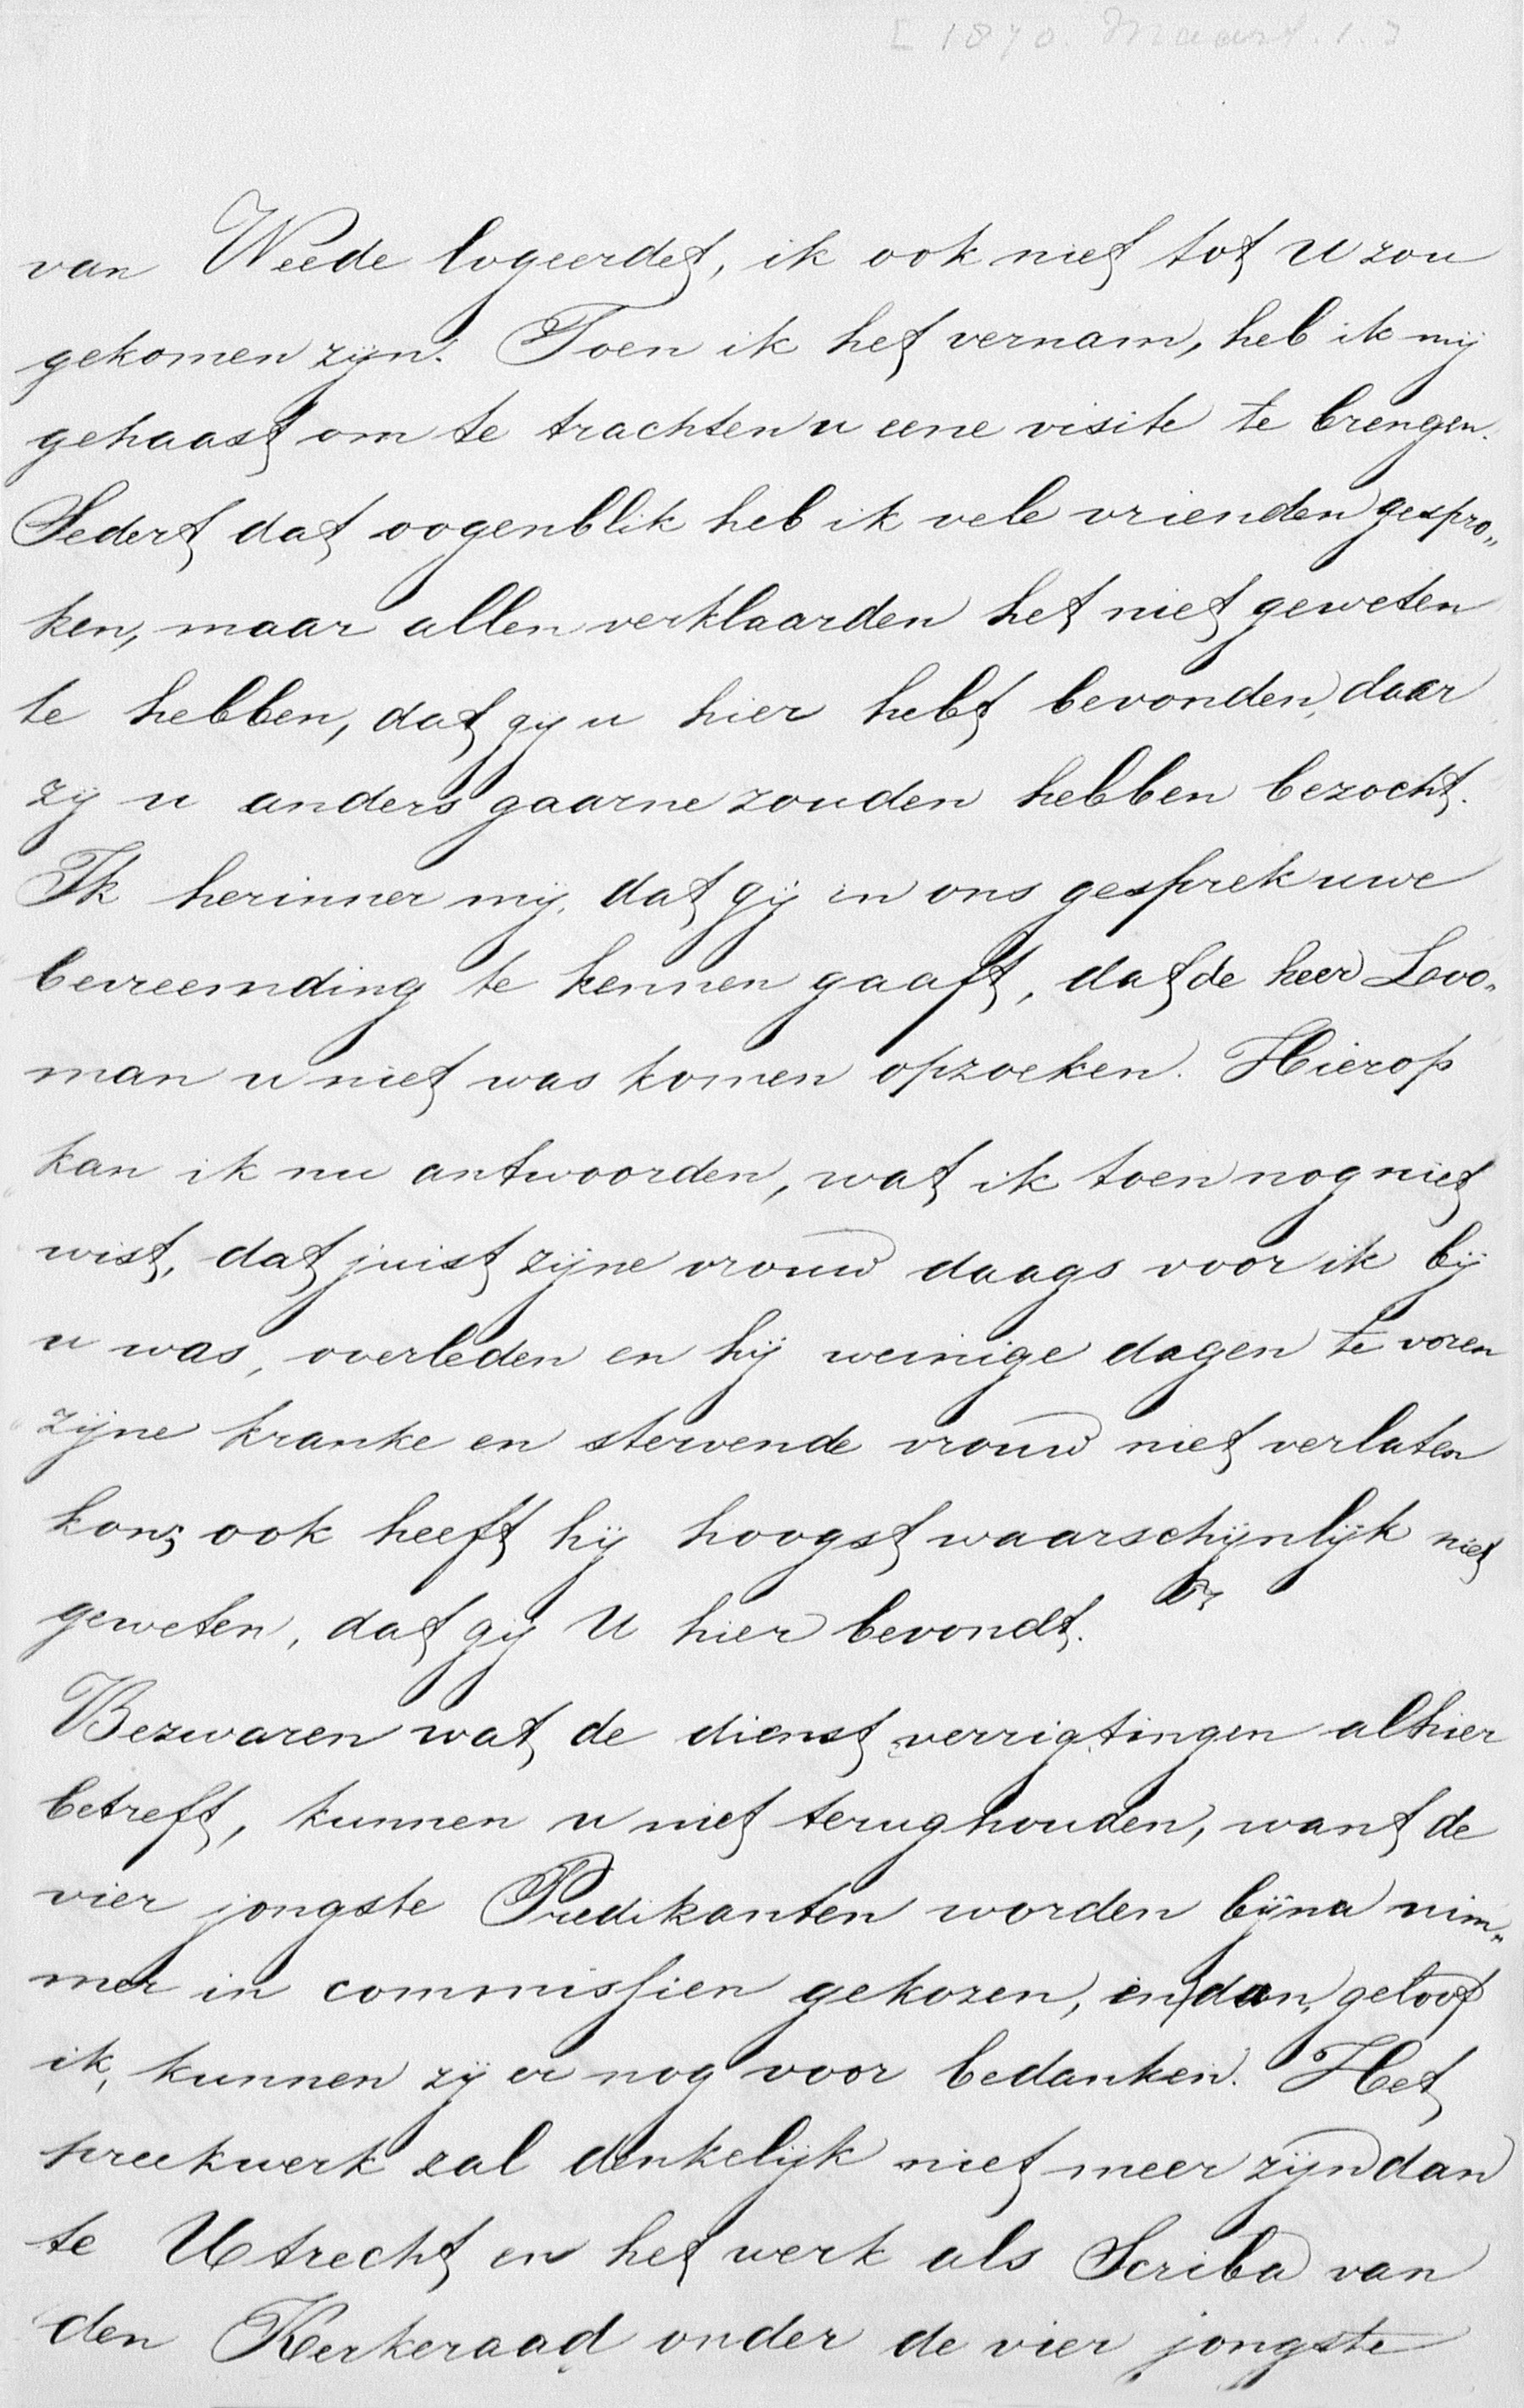 [1870. Maart. 1.]
van Weede logeerdet, ik ook niet tot U zou
gekomen zijn. Toen ik het vernam, heb ik mij
gehaast om te trachten u eene visite te brengen.
Sedert dat oogenblik heb ik vele vrienden gespro„
ken, maar allen verklaarden het niet geweten
te hebben, dat gij u hier hebt bevonden, daar
zij u anders gaarne zouden hebben bezocht.
Ik herinner mij, dat gij in ons gesprek uwe
bevreemding te kennen gaaft, dat de heer Loo„
man u niet was komen opzoeken. Hierop
kan ik nu antwoorden, wat ik toen nog niet
wist, dat juist zijne vrouw daags voor ik bij
u was, overleden en hij weinige dagen te voren
zijne kranke en stervende vrouw niet verlaten
kon; ook heeft hij hoogst waarschijnlijk niet
geweten, dat gij U hier bevondt.
Bezwaren wat de dienst verrigtingen alhier
betreft, kunnen u niet terughouden, want de
vier jongste Predikanten worden bijna nim„
mer in commissien gekozen, en dan, geloof
ik, kunnen zij er nog voor bedanken. Het
preekwerk zal denkelijk niet meer zijn dan
te Utrecht en het werk als Scriba van
den Kerkeraad onder de vier jongste